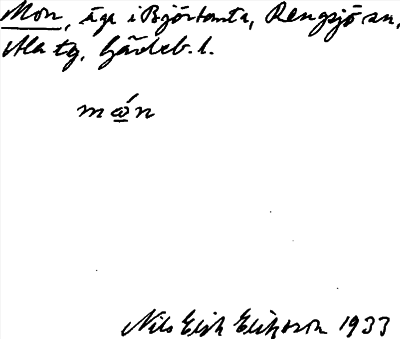 Mon, äga i Björtomta, Rengsjö sn,
Ala tg, Gävleb. l.
mώ̲n
Nils Erik Eliasson 1933